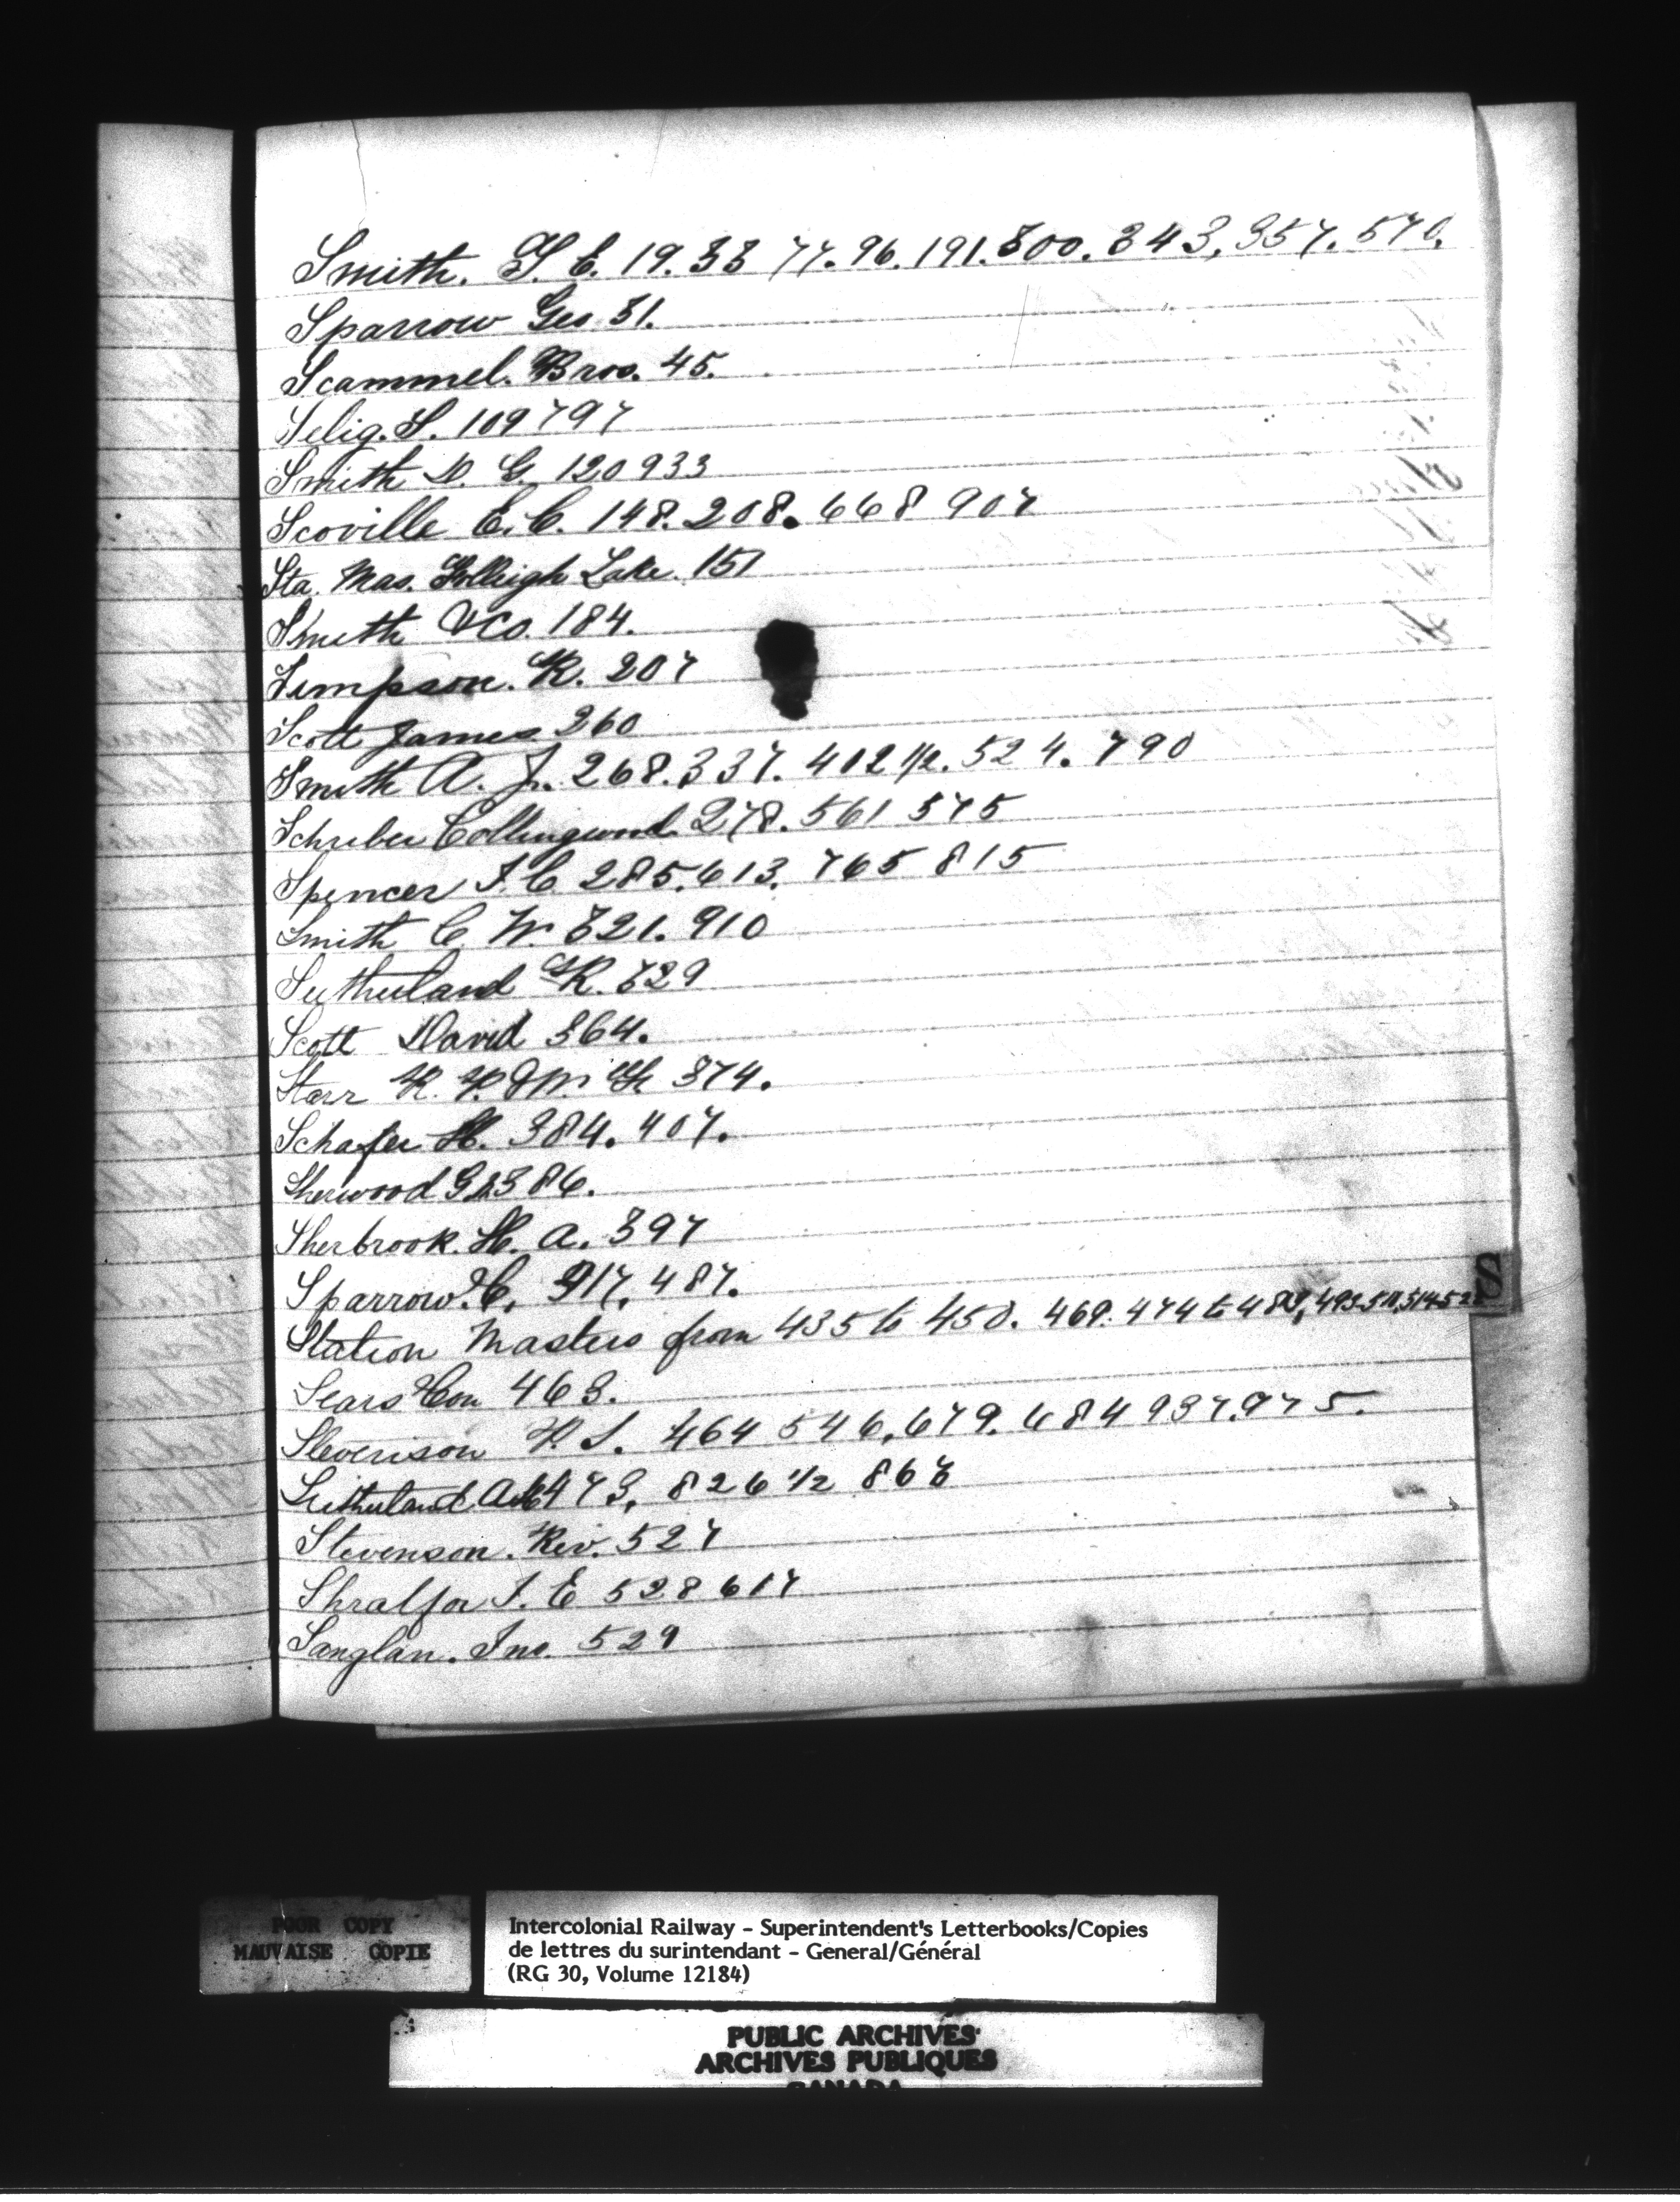 Smith. G. C. 19. 33 77. 96. 191. 300. 343, 357. 570.
Sparrow Geo 31.
Scammel. Bros. 45.
Selig. S. 109 797
Smith D. G. 120 933
Scoville E. C. 148. 208. 668 907
Sta. Mas. Folleigh Lake. 151
Smith & Co. 184.
Simpson. R. 207
Scott James 260
Smith A. J. 268. 337. 412 1/2. 524. 790
Schriber Collingwood 278. 561 575
Spencer J. C. 285. 613. 765 815
Smith C. W. 321. 910
Sutherland R. 329
Scott David 364.
Starr R. P. & W. F. 374.
Schafer H. 384. 407.
Sherwood 386.
Sherbrook. H. A. 397
Sparrow. C. 917, 487.
Station Masters from 435 to 450. 469. 474 to
Sears Con 463.
Stevenson P. S. 464 546, 679. 684 937. 975.
Sutherland 473, 826 1/2 863
Stevenson. Rev. 527
Shralfor J. E 528 617
Sanglan. Jno. 529
S
POOR COPY
MAUVAISE COPIE
Intercolonial Railway - Superintendent's Letterbooks/Copies
de lettres du surintendant - General/Général
(RG 30, Volume 12184)
PUBLIC ARCHIVES
ARCHIVES PUBLIQUES
CANADA